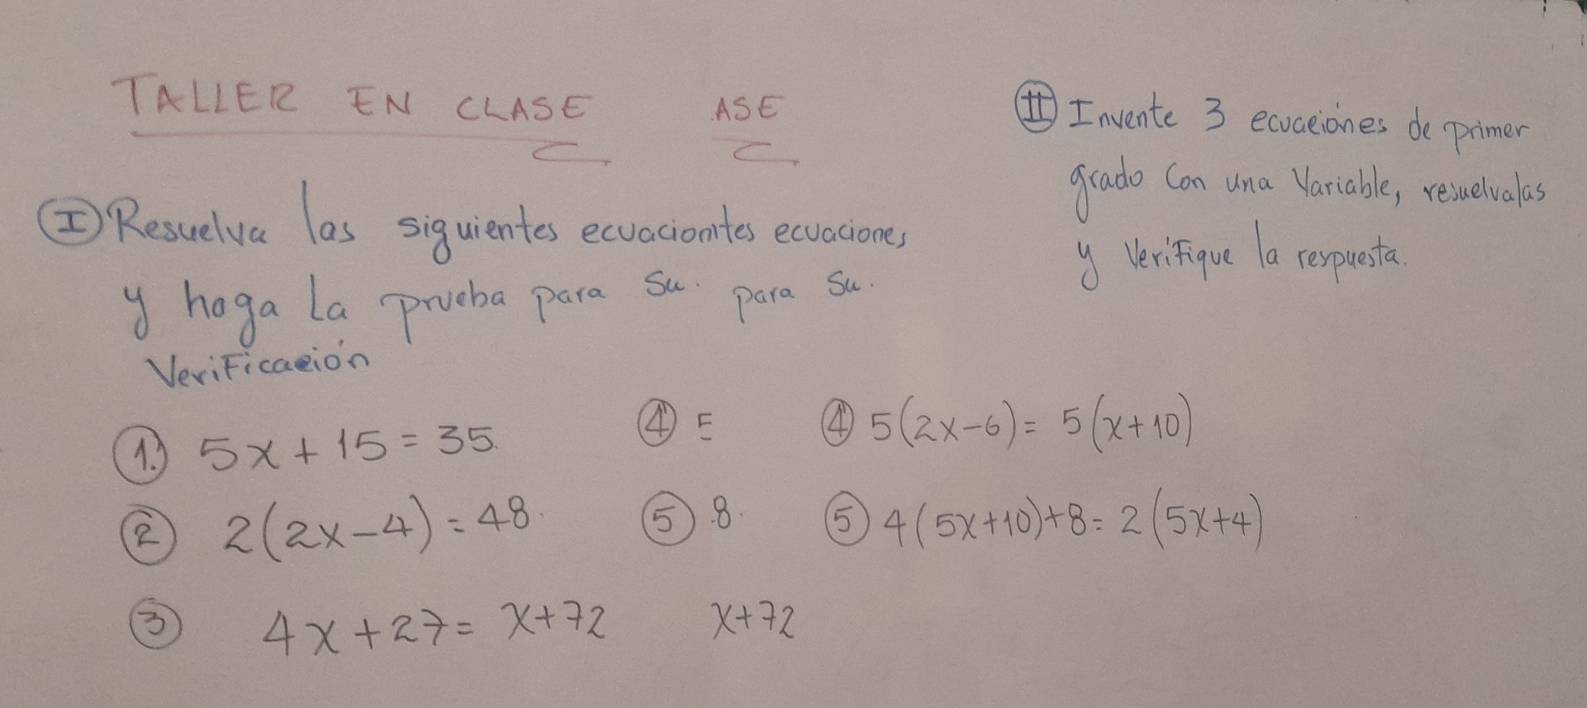 TALLER EN CLASE ASE
I Resuelva las siguientes ecuaciontes ecuaciones
y haga La prueba para Su. para Su.
Verificación
1. 5x + 15 = 35.
2 2(2x-4) = 48.
3 4x + 27 = x+72 x+72
4 5
5 8.
4 5(2x-6) = 5(x+10)
5 4(5x+10)+8 = 2(5x+4)
II Invente 3 ecuaciones de primer
grado Con una Variable, resuelvalas
y Verifique la respuesta.